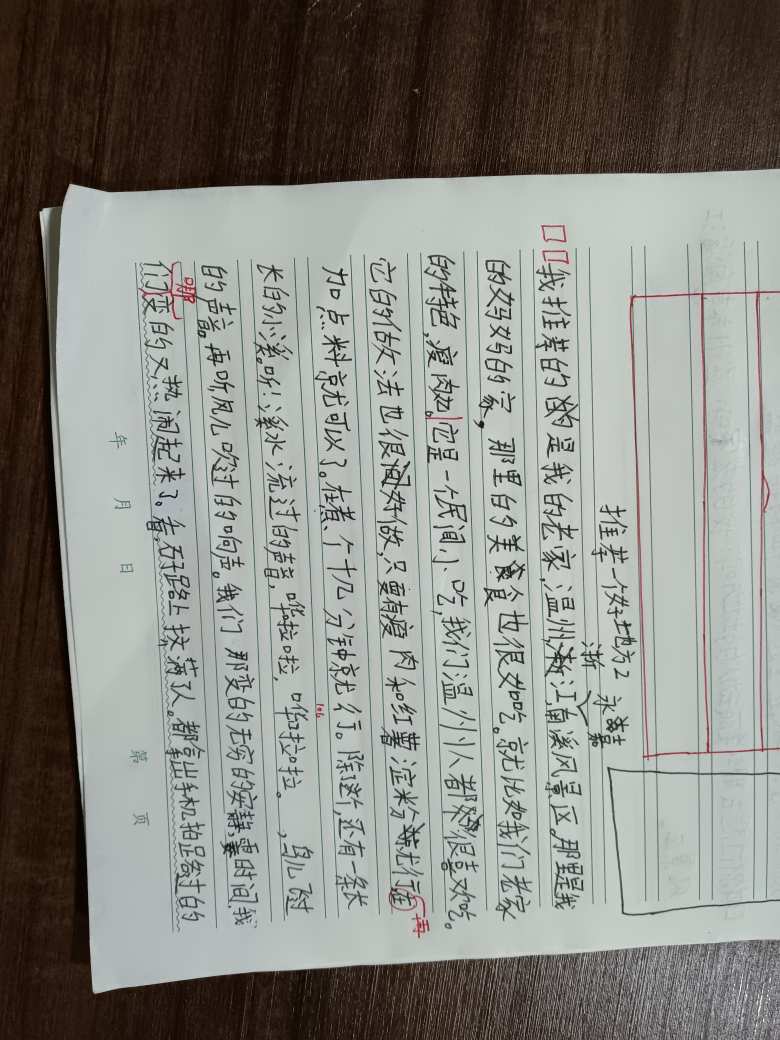 推荐一个好地方2
永嘉
浙
我推荐的是我的老家,温州,浙江南溪风景区。那里是我
的妈妈的家,那里的美食也很好吃。就比如我们老家
的特色,瘦肉丸。它是一个民间小吃,我们温州人都很喜欢吃。
它的做法也很好做,只要有瘦肉和红薯淀粉就行在
再
加点料就可以了。在煮个十几分钟就行。除这个,还有一条长
106
长的小溪。听!溪水流过的声音,哗啦啦,哗啦啦。,鸟儿飞过
的声音。再听风儿吹过的响声。我们那变的无穷的安静,要时间,我
哪
们变的又热闹起来了。看,石子路上挤满了人。都拿出手机拍足路过的
年 月 日
第 页